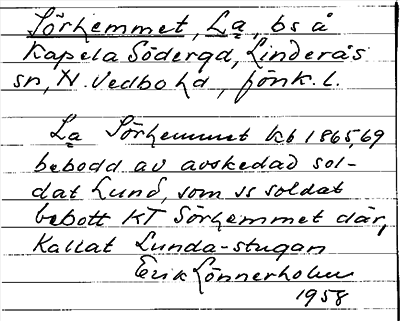 Sörhemmet, La, bs å
Kapela Södergd, Linderås
sn, N. Vedbo hd, Jönk. l.
La Sörhemmet kb 1865,69
bebodd av avskedad sol-
dat Lund, som ss soldat
bebott KT Sörhemmet där,
Kallat Lunda-stugan
Erik Lönnerholm
1958